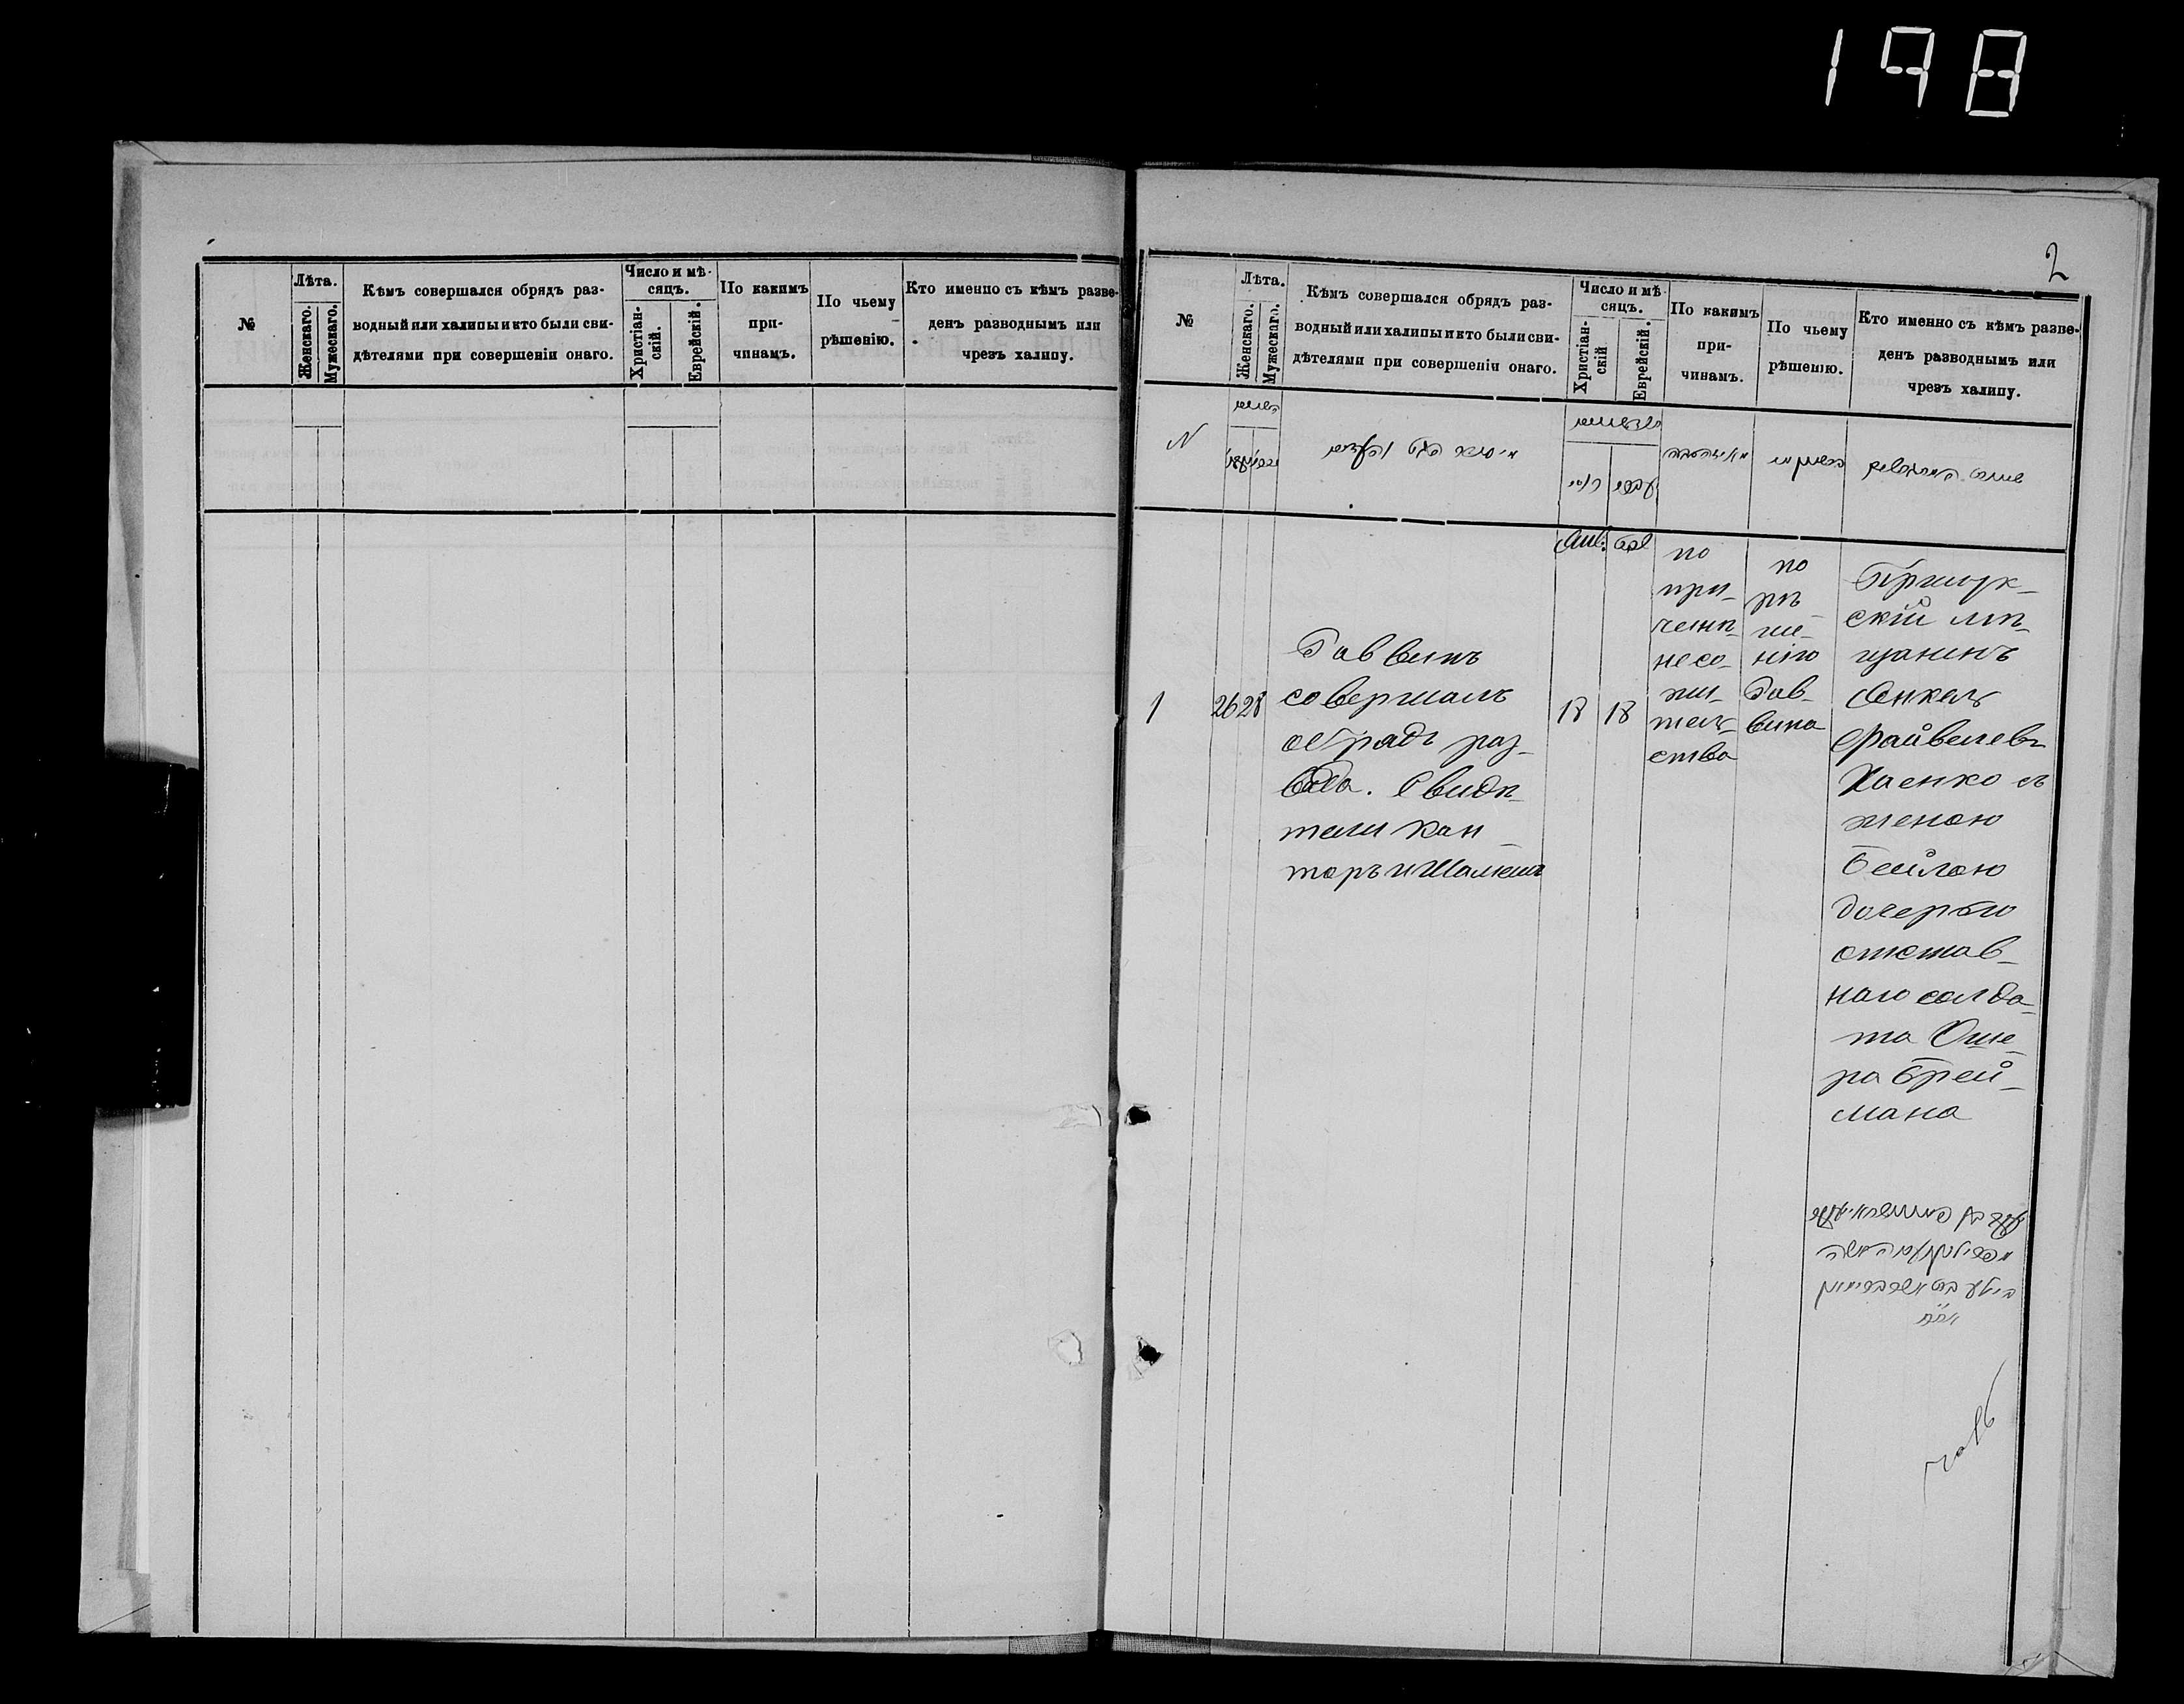 198
№
Лѣта.
Женскаго.
Мужескаго.
Кѣмъ совершался обрядъ раз-
водный или халицы и кто были сви-
дѣтелями при совершеніи онаго.
Число и мѣ-
сяцъ.
Христіан-
скій.
Еврейскій.
По какимъ
при-
чинамъ.
По чьему
рѣшенію.
Кто именно съ кѣмъ разве-
денъ разводнымъ или
чрезъ халицу.
2
№
Лѣта.
Женскаго.
Мужескаго.
Кѣмъ совершался обрядъ раз-
водный или халицы и кто были сви-
дѣтелями при совершеніи онаго.
Число и мѣ-
сяцъ.
Христіан-
скій
Еврейскій.
По какимъ
при-
чинамъ.
По чьему
рѣшенію.
Кто именно съ кѣмъ разве-
денъ разводнымъ или
чрезъ халицу.
N
1
26 28
Раввинъ
совершалъ
обрядъ раз-
вода. Свидѣ-
тели Кан-
торъ и
Янв.
18
18
по
при-
чинѣ
несо-
жи-
тель-
ства
по
рѣ-
ше-
нію
Рав-
вина
Прилук-
скій мѣ-
щанинъ
Янкель
Файвелевъ
Хаенко съ
женою
Бейлою
дочерью
отстав-
наго солда-
та Оше-
ра Брей-
мана